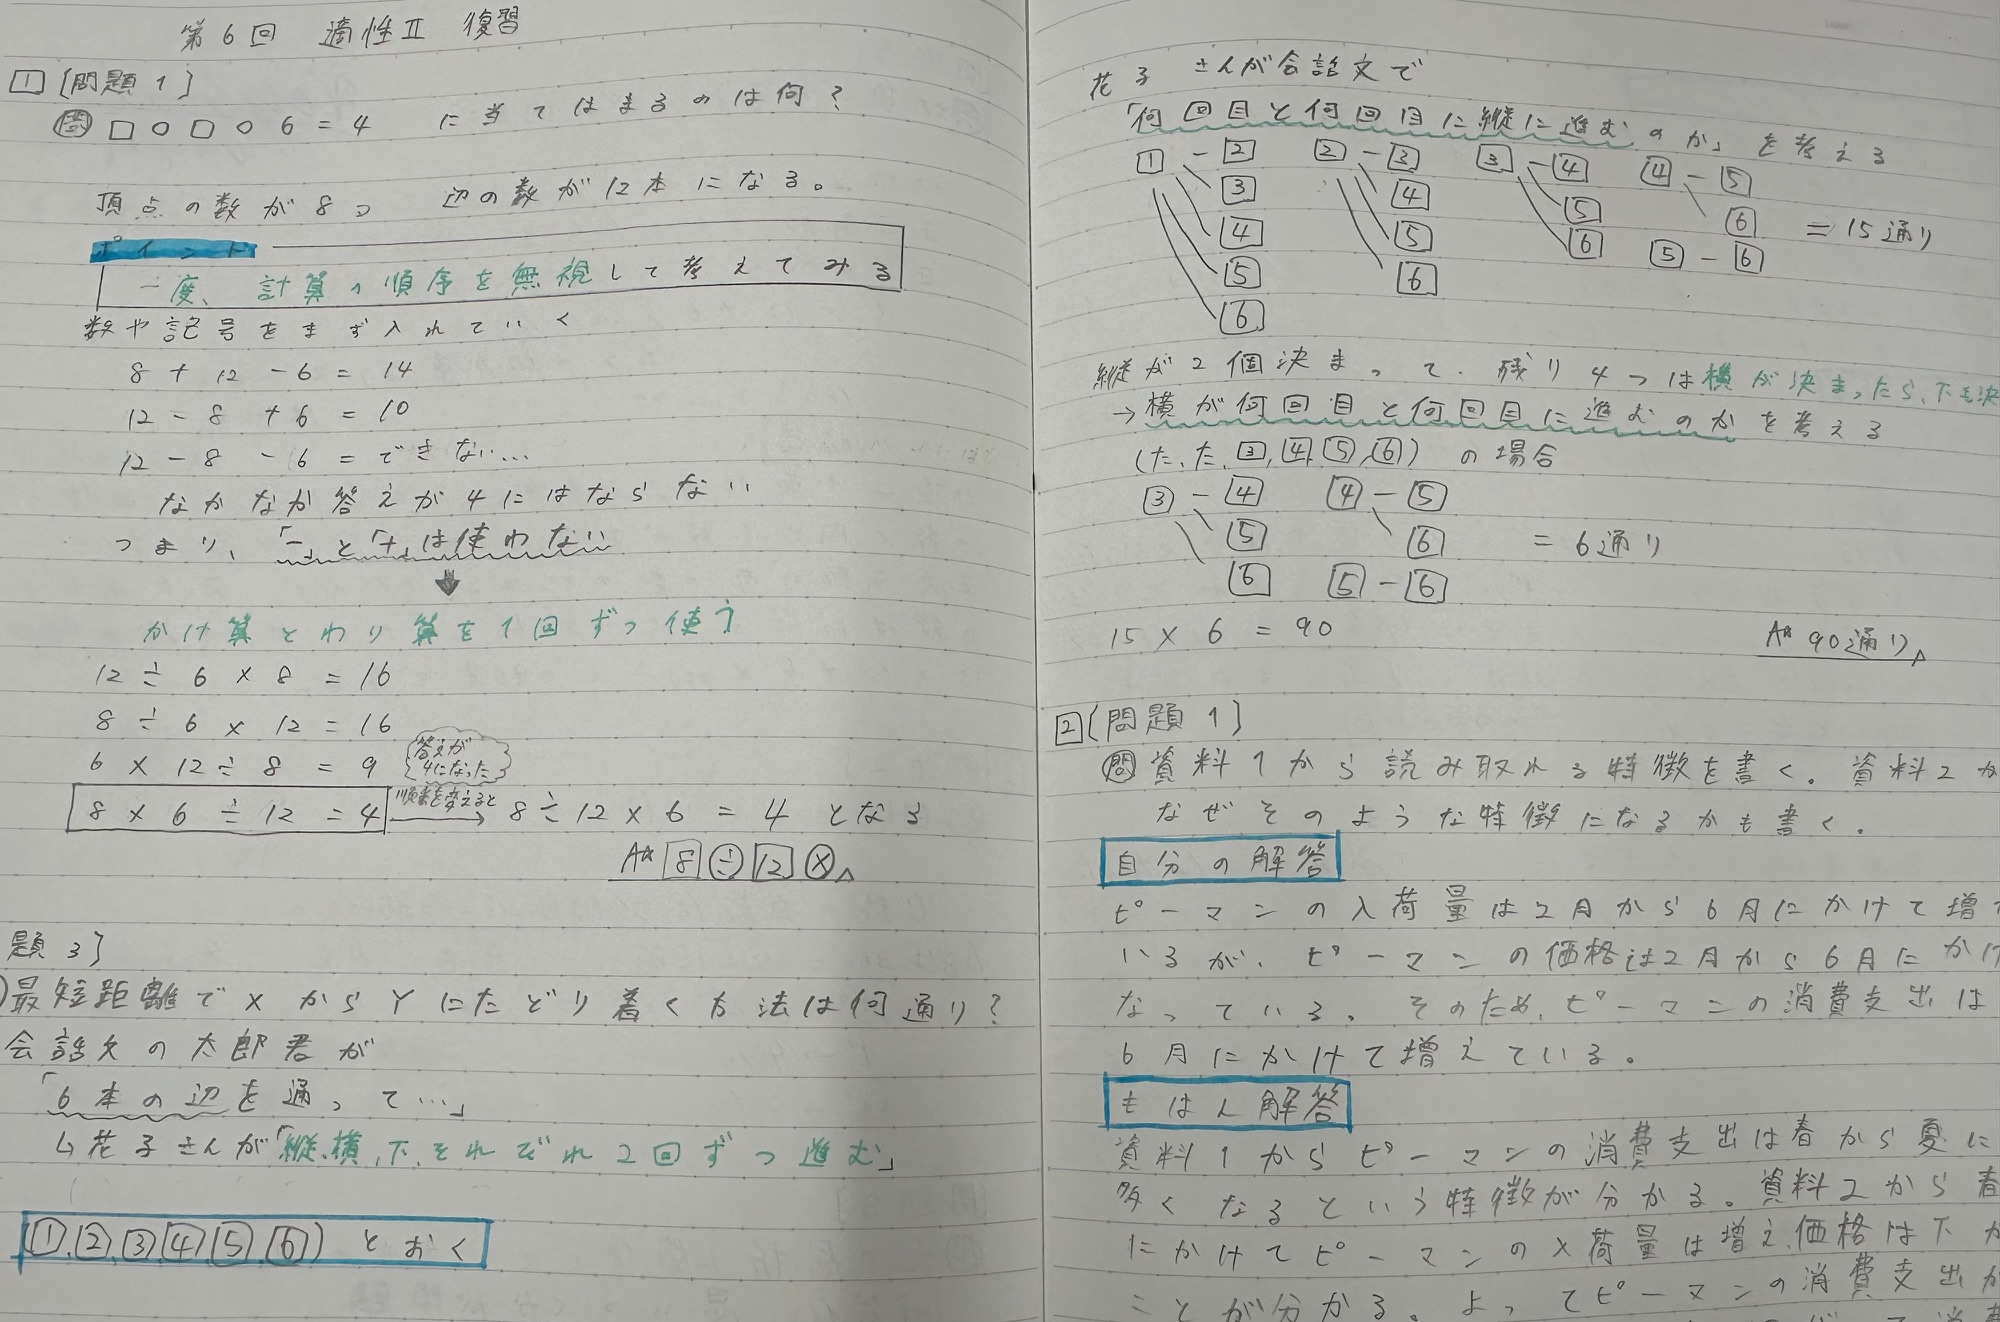 第6回 適性Ⅱ 復習
1 [問題1]
問 □○□○6=4 に当てはまるのは何?
頂点の数が8つ 辺の数が12本になる。
ポイント
一度、計算の順序を無視して考えてみる
数や記号をまず入れていく
8+12-6=14
12-8+6=10
12-8-6=できない…
なかなか答えが4にはならない
つまり、「-」と「+」は使わない
かけ算とわり算を1回ずつ使う
12÷6×8=16
8÷6×12=16
6×12÷8=9
答えが
4になった
8×6÷12=4 順番を変えると 8÷12×6=4 となる
A☆ 8 ÷ 12 ×
題3]
最短距離でXからYにたどり着く方法は何通り?
会話文の太郎君が
「6本の辺を通って…」
↳花子さんが「縦、横、下、それぞれ2回ずつ進む」
(1,2,3,4,5,6) とおく
花子さんが会話文で
「何回目と何回目に縦に進むのか」を考える
1-2 2-3 3-4 4-5
3 4 5 6
4 5 6 5-6
5 6
6
=15通り
縦が2個決まって、残り4つは横が決まったら、下も決
→横が何回目と何回目に進むのかを考える
(た、た、3,4,5,6) の場合
3-4 4-5
5 6
6 5-6
=6通り
15×6=90
A☆ 90通り
2 [問題1]
問 資料1から読み取れる特徴を書く。資料2か
なぜそのような特徴になるかも書く。
自分の解答
ピーマンの入荷量は2月から6月にかけて増
いるが、ピーマンの価格は2月から6月にかけ
なっている。そのため、ピーマンの消費支出は
6月にかけて増えている。
もはん解答
資料1からピーマンの消費支出は春から夏に
多くなるという特徴が分かる。資料2から春
にかけてピーマンの入荷量は増え、価格は下が
ことが分かる。よってピーマンの消費支出が